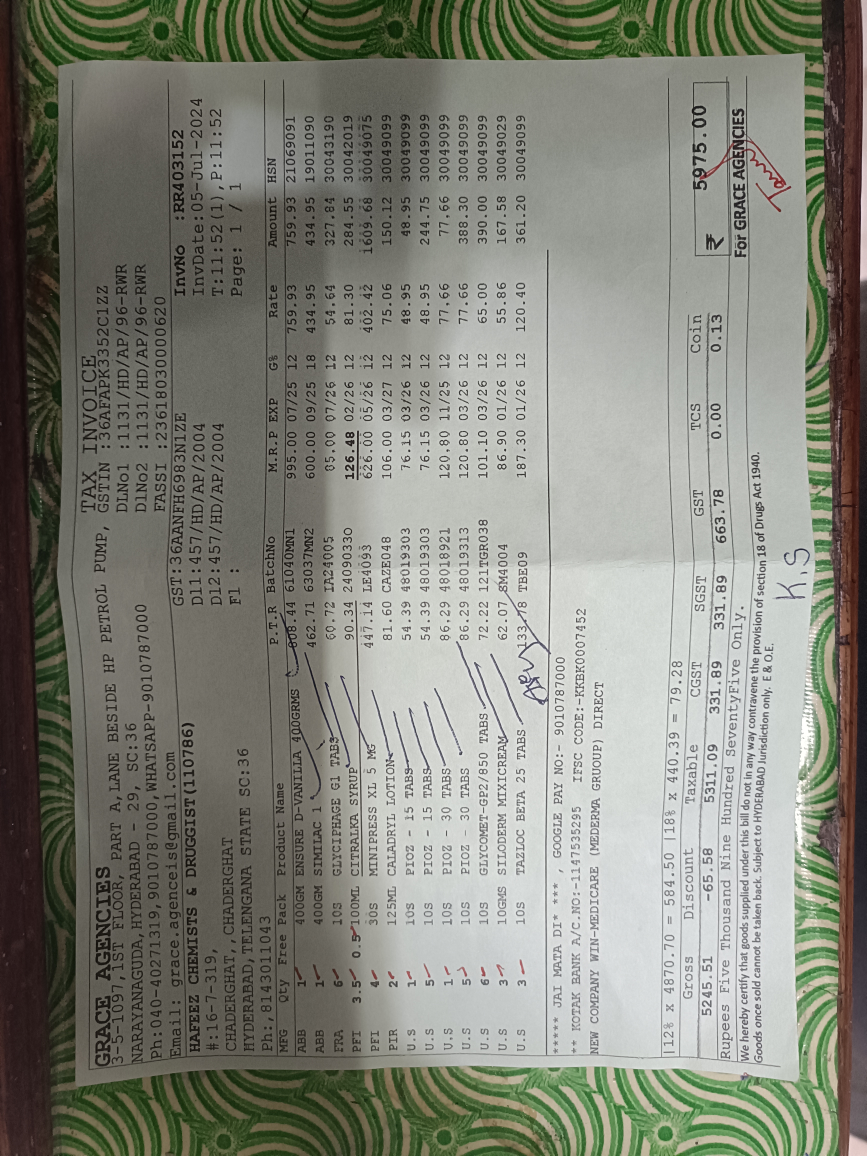 TAX INVOICE
GRACE AGENCIES
3-5-1097,1ST FLOOR, PART A,LANE BESIDE HP PETROL PUMP,
NARAYANAGUDA,HYDERABAD - 29, SC:36
Ph:040-40271319,9010787000,WHATSAPP-9010787000
Email: grace.agenceis@gmail.com
GSTIN :36AFAPK3352C1ZZ
DLNo1 :1131/HD/AP/96-RWR
DlNo2 :1131/HD/AP/96-RWR
FASSI :23618030000620
HAFEEZ CHEMISTS & DRUGGIST(110786)
#:16-7-319,
CHADERGHAT,,CHADERGHAT
HYDERABAD,TELENGANA STATE SC:36
Ph:,8143011043
GST:36AANFH6983N1ZE
Dl1:457/HD/AP/2004
Dl2:457/HD/AP/2004
Fl :
InvNo :RR403152
InvDate:05-Jul-2024
T:11:52(1),P:11:52
Page: 1 / 1
MFG Qty Free Pack Product Name P.T.R BatchNo M.R.P EXP G% Rate Amount HSN
ABB 1 400GM ENSURE D-VANILLA 400GRMS 808.44 61040MN1 995.00 07/25 12 759.93 759.93 21069091
ABB 1 400GM SIMILAC 1 462.71 63037MN2 600.00 09/25 18 434.95 434.95 19011090
FRA 6 10S GLYCIPHAGE G1 TABS 60.72 IA24005 85.00 07/26 12 54.64 327.84 30043190
PFI 3.5 0.5 100ML CITRALKA SYRUP 90.34 24090330 126.48 02/26 12 81.30 284.55 30042019
PFI 4 30S MINIPRESS XL 5 MG 447.14 LE4093 626.00 05/26 12 402.42 1609.68 30049075
PIR 2 125ML CALADRYL LOTION 81.60 CAZE048 106.00 03/27 12 75.06 150.12 30049099
U.S 1 10S PIOZ - 15 TABS 54.39 48019303 76.15 03/26 12 48.95 48.95 30049099
U.S 5 10S PIOZ - 15 TABS 54.39 48019303 76.15 03/26 12 48.95 244.75 30049099
U.S 1 10S PIOZ - 30 TABS 86.29 48018921 120.80 11/25 12 77.66 77.66 30049099
U.S 5 10S PIOZ - 30 TABS 86.29 48019313 120.80 03/26 12 77.66 388.30 30049099
U.S 6 10S GLYCOMET-GP2/850 TABS 72.22 121TGR038 101.10 03/26 12 65.00 390.00 30049099
U.S 3 10GMS SILODERM MIXICREAM 62.07 SM4004 86.90 01/26 12 55.86 167.58 30049029
U.S 3 10S TAZLOC BETA 25 TABS 133.78 TBE09 187.30 01/26 12 120.40 361.20 30049099
***** JAI MATA DI* *** , GOOGLE PAY NO:- 9010787000
** KOTAK BANK A/C.NO:-1147535295 IFSC CODE:-KKBK0007452
NEW COMPANY WIN-MEDICARE (MEDERMA GRUOUP) DIRECT
|12% x 4870.70 = 584.50 |18% x 440.39 = 79.28
Gross Discount Taxable CGST SGST GST TCS Coin
5245.51 -65.58 5311.09 331.89 331.89 663.78 0.00 0.13
₹ 5975.00
Rupees Five Thousand Nine Hundred SeventyFive Only.
For GRACE AGENCIES
We hereby certify that goods supplied under this bill do not in any way contravene the provision of section 18 of Drugs Act 1940.
Goods once sold cannot be taken back. Subject to HYDERABAD Jurisdiction only. E & O.E.
K.S